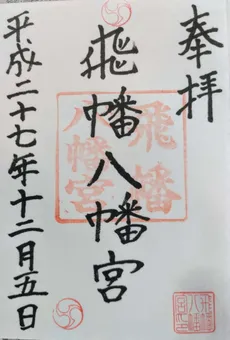 奉拝
飛幡八幡宮
飛幡八幡宮
平成二十七年十二月五日